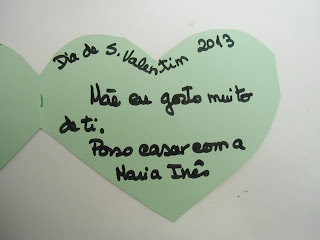 Dia de S. Valentim 2013
Mãe eu gosto muito
de ti.
Posso casar com a
Maria Inês